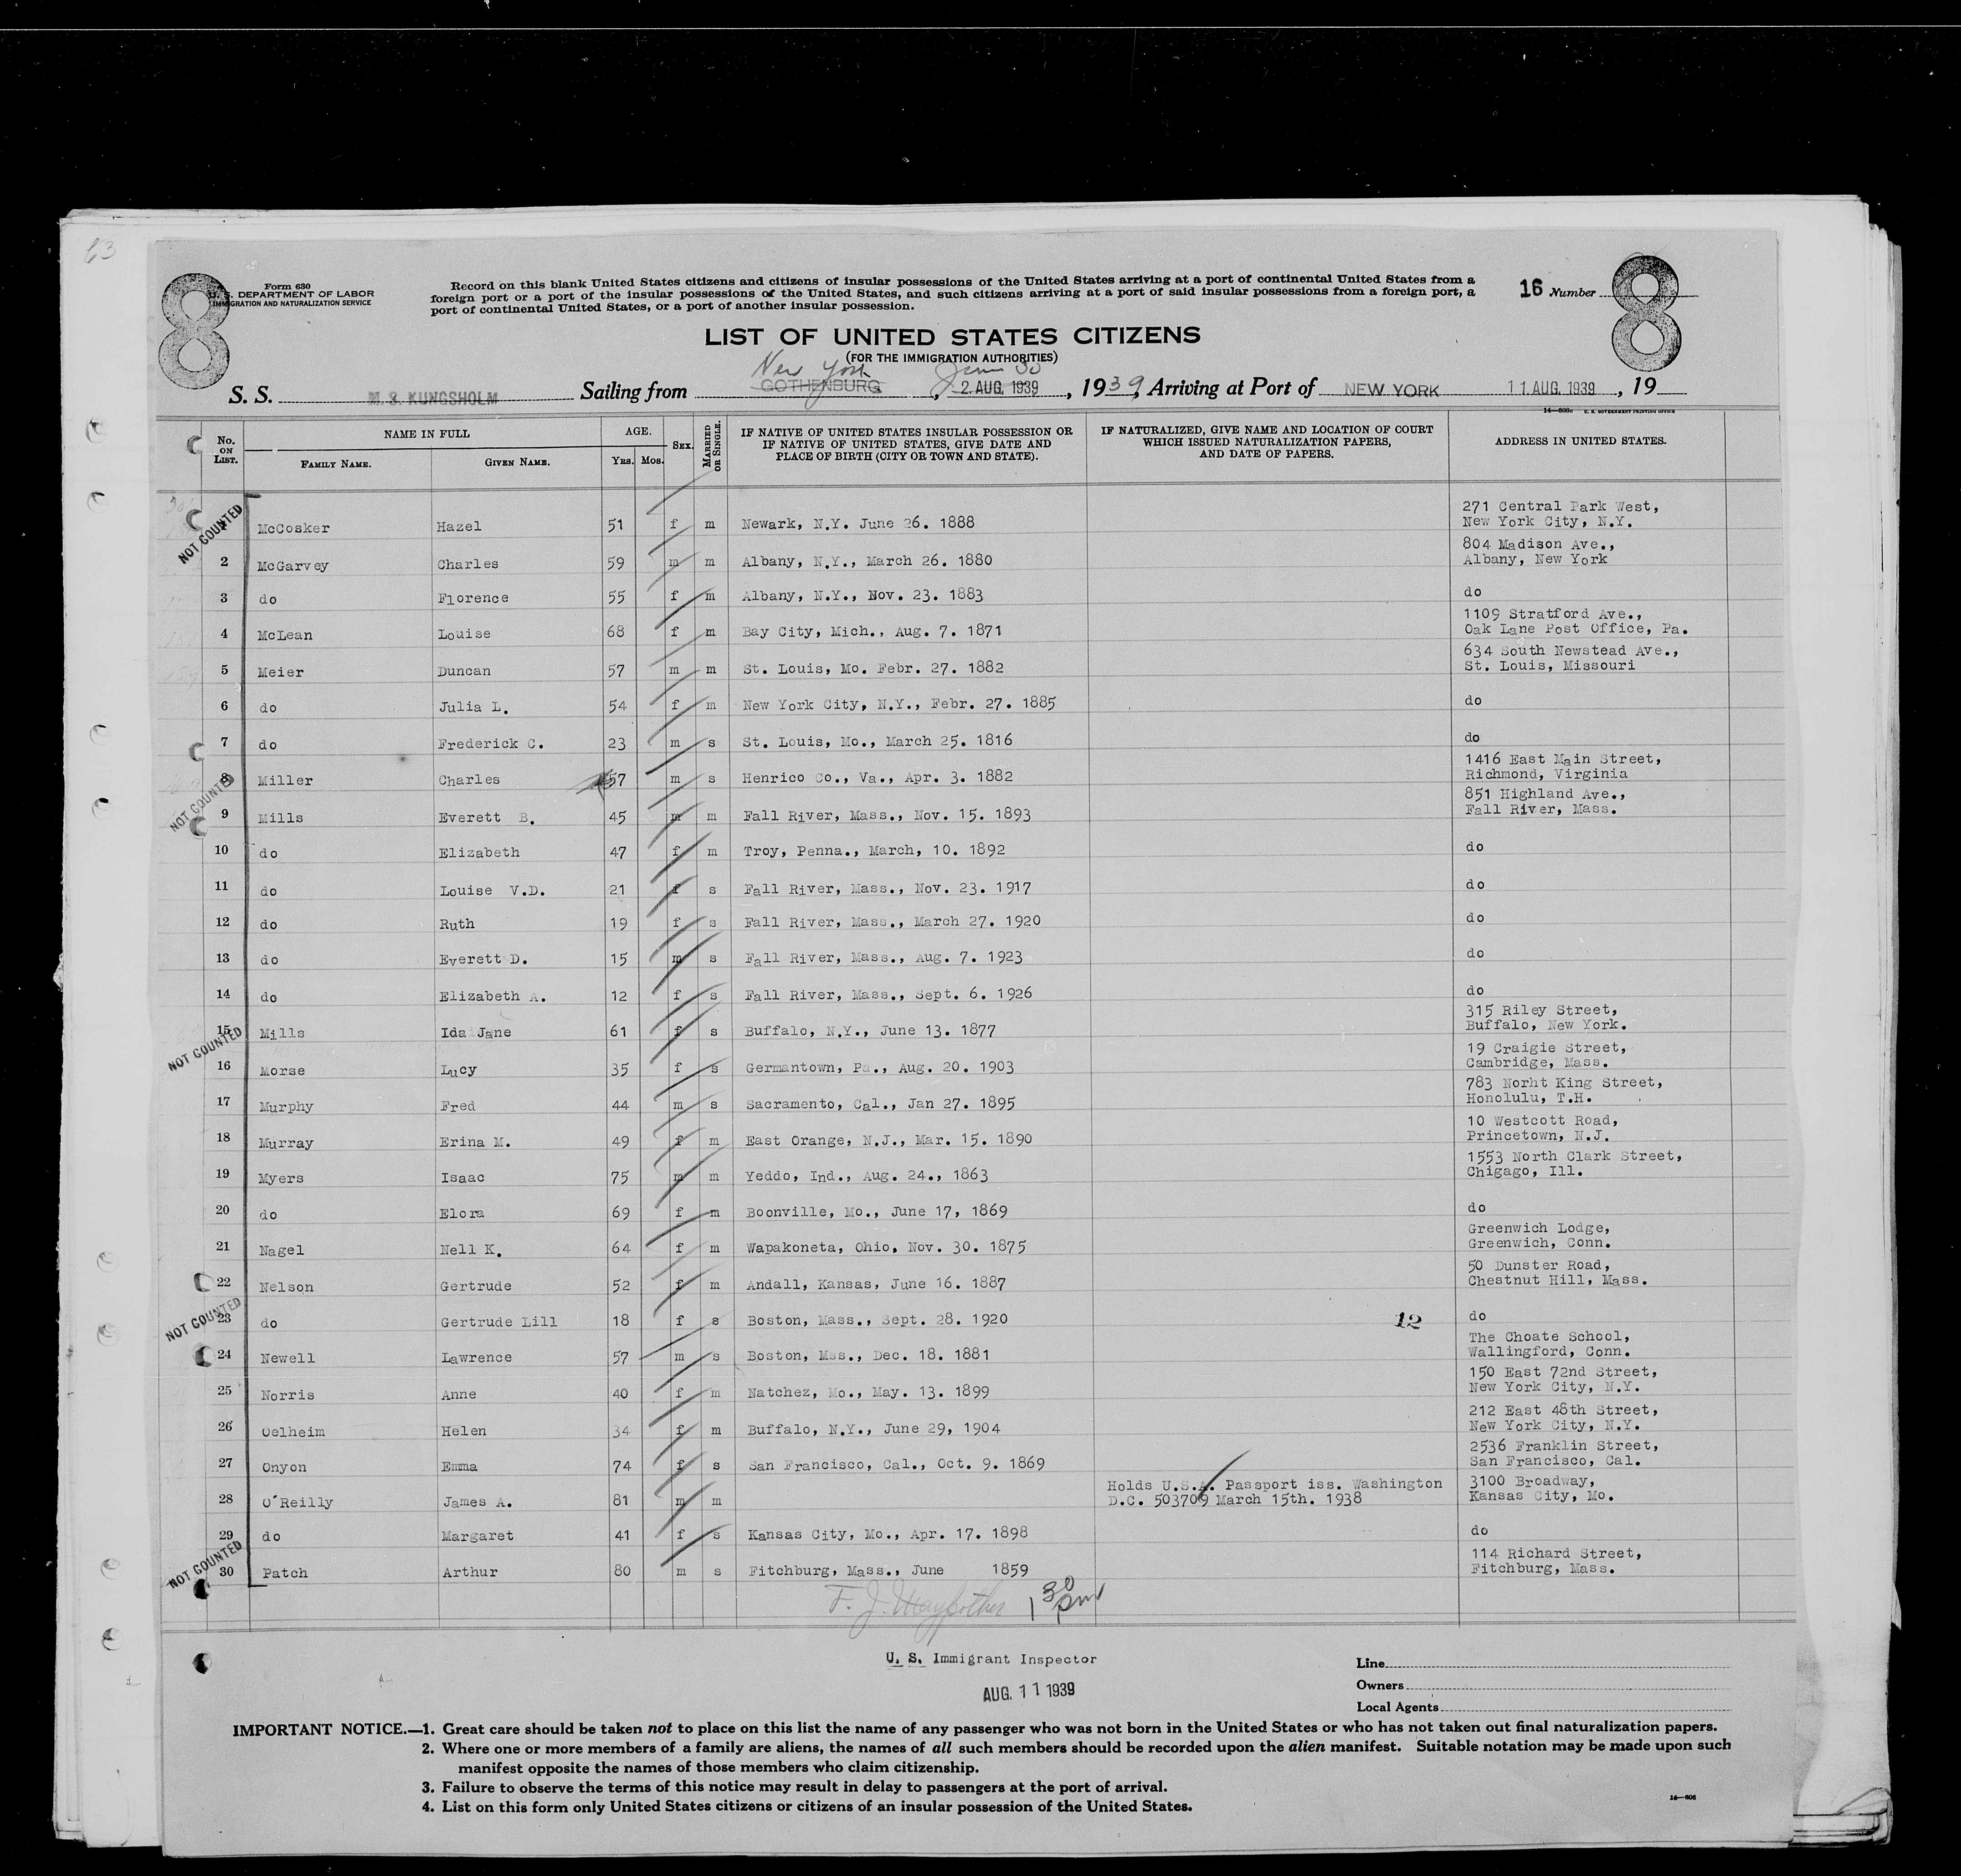 63
8 Form 630
U. S. DEPARTMENT OF LABOR
IMMIGRATION AND NATURALIZATION SERVICE
Record on this blank United States citizens and citizens of insular possessions of the United States arriving at a port of continental United States from a
foreign port or a port of the insular possessions of the United States, and such citizens arriving at a port of said insular possessions from a foreign port, a
port of continental United States, or a port of another insular possession.
16 Number 8
LIST OF UNITED STATES CITIZENS
(FOR THE IMMIGRATION AUTHORITIES)
New York June 30
S. S. M. S. KUNGSHOLM Sailing from GOTHENBURG, 2. AUG. 1939, 1939, Arriving at Port of NEW YORK 11 AUG. 1939, 19
14—608c U. S. GOVERNMENT PRINTING OFFICE
No. ON LIST. NAME IN FULL FAMILY NAME. GIVEN NAME. AGE. YRS. MOS. SEX. MARRIED OR SINGLE. IF NATIVE OF UNITED STATES INSULAR POSSESSION OR IF NATIVE OF UNITED STATES, GIVE DATE AND PLACE OF BIRTH (CITY OR TOWN AND STATE). IF NATURALIZED, GIVE NAME AND LOCATION OF COURT WHICH ISSUED NATURALIZATION PAPERS, AND DATE OF PAPERS. ADDRESS IN UNITED STATES.
NOT COUNTED
271 Central Park West,
1 McCosker Hazel 51 f m Newark, N.Y. June 26. 1888 New York City, N.Y.
804 Madison Ave.,
2 McGarvey Charles 59 m m Albany, N.Y., March 26. 1880 Albany, New York
3 do Florence 55 f m Albany, N.Y., Nov. 23. 1883 do
1109 Stratford Ave.,
4 McLean Louise 68 f m Bay City, Mich., Aug. 7. 1871 Oak Lane Post Office, Pa.
634 South Newstead Ave.,
5 Meier Duncan 57 m m St. Louis, Mo. Febr. 27. 1882 St. Louis, Missouri
6 do Julia L. 54 f m New York City, N.Y., Febr. 27. 1885 do
7 do Frederick C. 23 m s St. Louis, Mo., March 25. 1816 do
1416 East Main Street,
8 Miller Charles 57 m s Henrico Co., Va., Apr. 3. 1882 Richmond, Virginia
NOT COUNTED
851 Highland Ave.,
9 Mills Everett B. 45 m m Fall River, Mass., Nov. 15. 1893 Fall River, Mass.
10 do Elizabeth 47 f m Troy, Penna., March, 10. 1892 do
11 do Louise V.D. 21 f s Fall River, Mass., Nov. 23. 1917 do
12 do Ruth 19 f s Fall River, Mass., March 27. 1920 do
13 do Everett D. 15 m s Fall River, Mass., Aug. 7. 1923 do
14 do Elizabeth A. 12 f s Fall River, Mass., Sept. 6. 1926 do
315 Riley Street,
15 Mills Ida Jane 61 f s Buffalo, N.Y., June 13. 1877 Buffalo, New York.
NOT COUNTED
19 Craigie Street,
16 Morse Lucy 35 f s Germantown, Pa., Aug. 20. 1903 Cambridge, Mass.
783 Norht King Street,
17 Murphy Fred 44 m s Sacramento, Cal., Jan 27. 1895 Honolulu, T.H.
10 Westcott Road,
18 Murray Erina M. 49 f m East Orange, N.J., Mar. 15. 1890 Princetown, N.J.
1553 North Clark Street,
19 Myers Isaac 75 m m Yeddo, Ind., Aug. 24., 1863 Chigago, Ill.
20 do Elora 69 f m Boonville, Mo., June 17, 1869 do
Greenwich Lodge,
21 Nagel Nell K. 64 f m Wapakoneta, Ohio, Nov. 30. 1875 Greenwich, Conn.
50 Dunster Road,
22 Nelson Gertrude 52 f m Andall, Kansas, June 16. 1887 Chestnut Hill, Mass.
NOT COUNTED
23 do Gertrude Lill 18 f s Boston, Mass., Sept. 28. 1920 12 do
The Choate School,
24 Newell Lawrence 57 m s Boston, Mss., Dec. 18. 1881 Wallingford, Conn.
150 East 72nd Street,
25 Norris Anne 40 f m Natchez, Mo., May. 13. 1899 New York City, N.Y.
212 East 48th Street,
26 Oelheim Helen 34 f m Buffalo, N.Y., June 29, 1904 New York City, N.Y.
2536 Franklin Street,
27 Onyon Emma 74 f s San Francisco, Cal., Oct. 9. 1869 San Francisco, Cal.
Holds U.S.A. Passport iss. Washington 3100 Broadway,
28 O'Reilly James A. 81 m m D.C. 503709 March 15th. 1938 Kansas City, Mo.
29 do Margaret 41 f s Kansas City, Mo., Apr. 17. 1898 do
NOT COUNTED
114 Richard Street,
30 Patch Arthur 80 m s Fitchburg, Mass., June 1859 Fitchburg, Mass.
F. J. 1 30 pm
U. S. Immigrant Inspector
AUG. 11 1939
Line
Owners
Local Agents
IMPORTANT NOTICE.—1. Great care should be taken not to place on this list the name of any passenger who was not born in the United States or who has not taken out final naturalization papers.
2. Where one or more members of a family are aliens, the names of all such members should be recorded upon the alien manifest. Suitable notation may be made upon such
manifest opposite the names of those members who claim citizenship.
3. Failure to observe the terms of this notice may result in delay to passengers at the port of arrival.
4. List on this form only United States citizens or citizens of an insular possession of the United States.
14—608